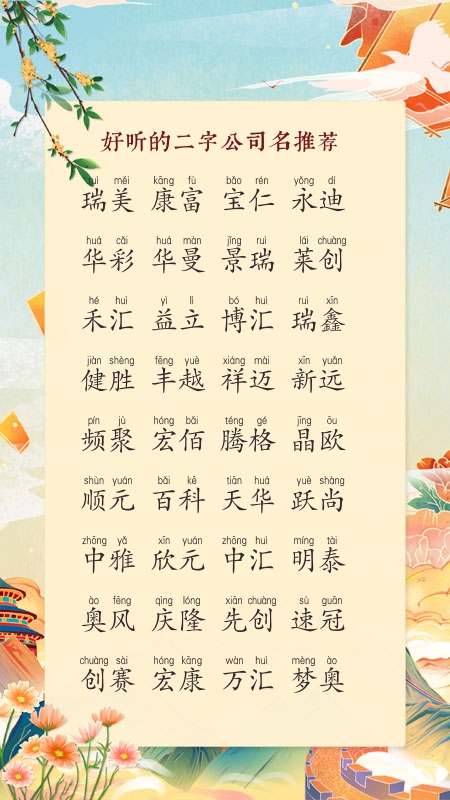 好听的二字公司名推荐
ruì měi kāng fù bǎo rén yǒng dí
瑞美 康富 宝仁 永迪
huá cǎi huá màn jǐng ruì lái chuàng
华彩 华曼 景瑞 莱创
hé huì yì lì bó huì ruì xīn
禾汇 益立 博汇 瑞鑫
jiàn shèng fēng yuè xiáng mài xīn yuǎn
健胜 丰越 祥迈 新远
pín jù hóng bǎi téng gé jīng ōu
频聚 宏佰 腾格 晶欧
shùn yuán bǎi kē tiān huá yuè shàng
顺元 百科 天华 跃尚
zhōng yǎ xīn yuán zhōng huì míng tài
中雅 欣元 中汇 明泰
ào fēng qìng lóng xiān chuàng sù guān
奥风 庆隆 先创 速冠
chuàng sài hóng kāng wàn huì mèng ào
创赛 宏康 万汇 梦奥